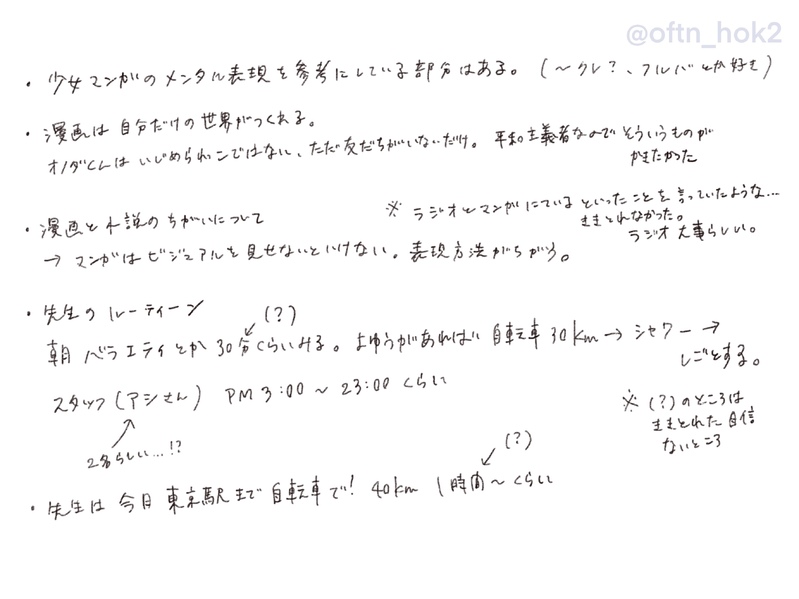 @oftn_hok2
・少女マンガのメンタル表現を参考にしている部分はある。(〜クレ?、フルバとか好き)
・漫画は自分だけの世界がつくれる。
オノダくんはいじめられっこではない、ただ友だちがいないだけ。平和主義者なのでそういうものが
かきたかった
・漫画と小説のちがいについて
※ラジオとマンガにているといったことを言っていたような…
ききとれなかった。
ラジオ大事らしい。
→マンガはビジュアルを見せないといけない。表現方法がちがう。
・先生のルーティーン
(?)
朝 バラエティとか30分くらいみる。よゆうがあれば自転車30km→シャワー→
しごとする。
スタッフ(アシさん) PM3:00〜23:00くらい
2名らしい…!?
※(?)のところは
ききとれた自信
ないところ
(?)
・先生は今日東京駅まで自転車で! 40km 1時間〜くらい